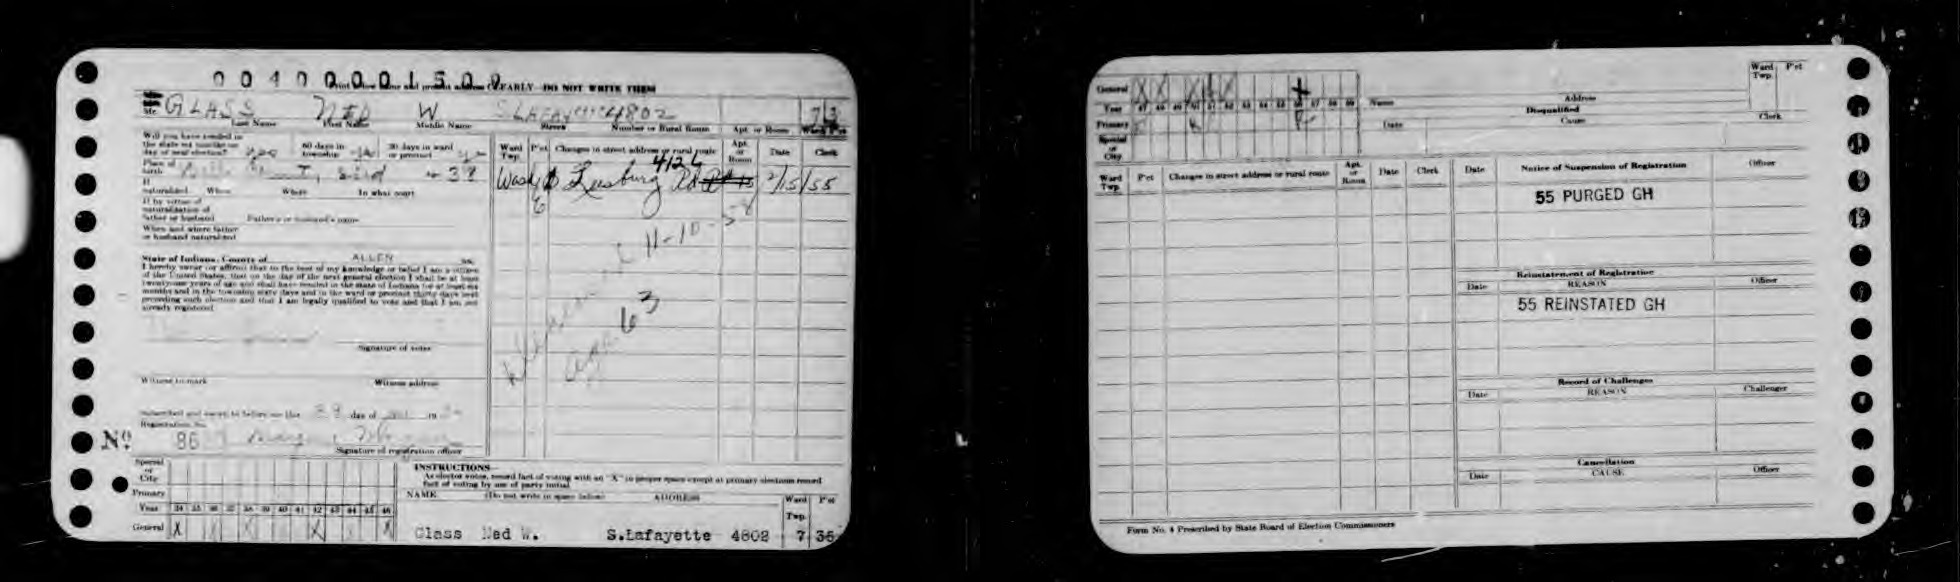 0 0 4 0 0 0 0 1 5 0 0
CLEARLY—DO NOT WRITE THEM
Mr. GLASS NED W S LAFAYETTE 4802 7 3
Last Name First Name Middle Name Street Number or Rural Route Apt. or Room Ward P'ct
Will you have resided in
the state six months on
day of next election? yes 60 days in township 30 days in ward or precinct
Place of birth
If naturalized When Where In what court
If by virtue of
naturalization of
father or husband Father's or husband's name
When and where father
or husband naturalized
State of Indiana, County of ALLEN ss.
I hereby swear (or affirm) that to the best of my knowledge or belief I am a citizen
of the United States, that on the day of the next general election I shall be at least
twenty-one years of age and shall have resided in the state of Indiana for at least six
months and in the township sixty days and in the ward or precinct thirty days next
preceding such election and that I am legally qualified to vote and that I am not
already registered
Signature of voter
Witness to mark Witness address
Subscribed and sworn to before me this day of 19
Registration No.
No. 86
Signature of registration officer
Ward Twp. P'ct Changes in street address or rural route Apt. or Room Date Clerk
4126
Wash Leesburg Rd 2/15/55
6
11-10-58
63
Special or City
Primary
Year 34 35 36 37 38 39 40 41 42 43 44 45 46
General X X X X
INSTRUCTIONS—
As elector votes, record fact of voting with an "X" in proper space except at primary elections record
fact of voting by use of party initial
NAME (Do not write in space below) ADDRESS Ward Twp. P'ct
Glass Ned W. S.Lafayette 4802 7 35
General X X X X X
Year 47 48 49 50 51 52 53 54 55 56 57 58 59
Primary
Special or City
Name Address Ward Twp. P'ct
Disqualified
Date Cause Clerk
Ward Twp. P'ct Changes in street address or rural route Apt. or Room Date Clerk
Date Notice of Suspension of Registration Officer
55 PURGED GH
Reinstatement of Registration
Date REASON Officer
55 REINSTATED GH
Record of Challenges
Date REASON Challenger
Cancellation
Date CAUSE Officer
Form No. 4 Prescribed by State Board of Election Commissioners